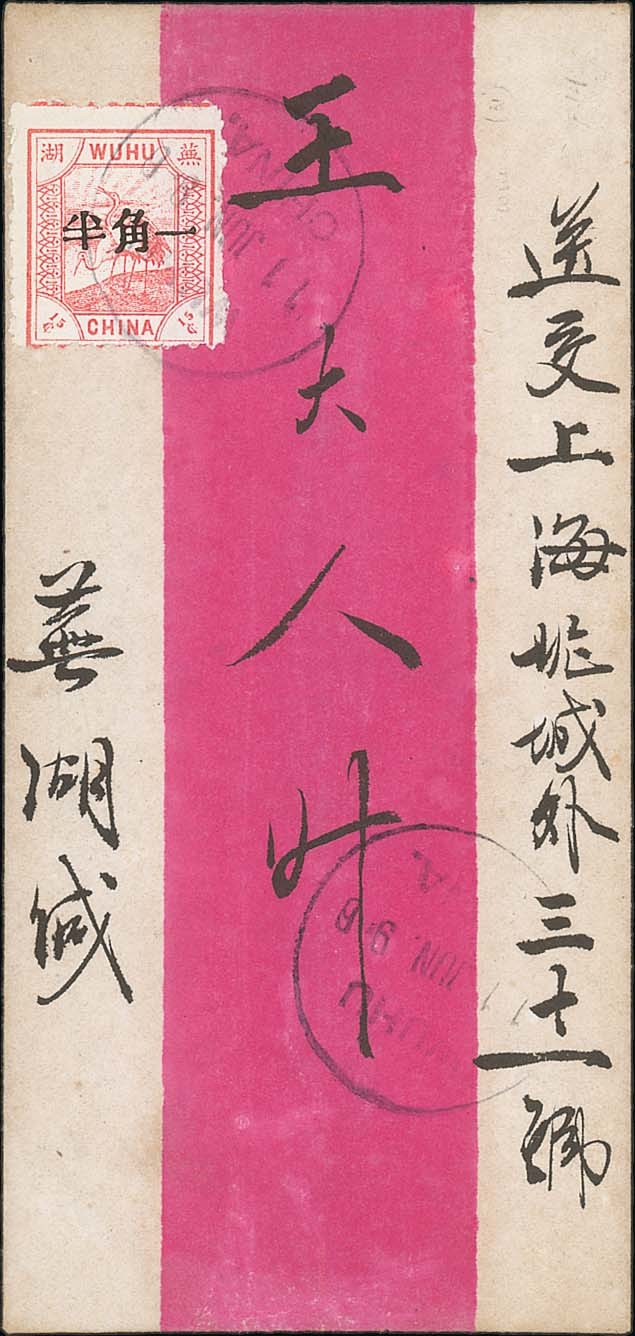 送交上海北城外三十一號
王大人升
蕪湖緘
湖 WUHU 蕪
半角一
15 CHINA 15
CHINA
11 JUN
WUHU
JUN 96